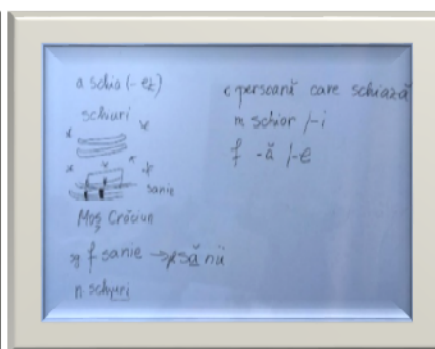 a schia (-ez)
schiuri
sanie
Moș Crăciun
sg f sanie → pl sănii
n schiuri
o persoană care schiază
m schior /-i
f -ă /-e